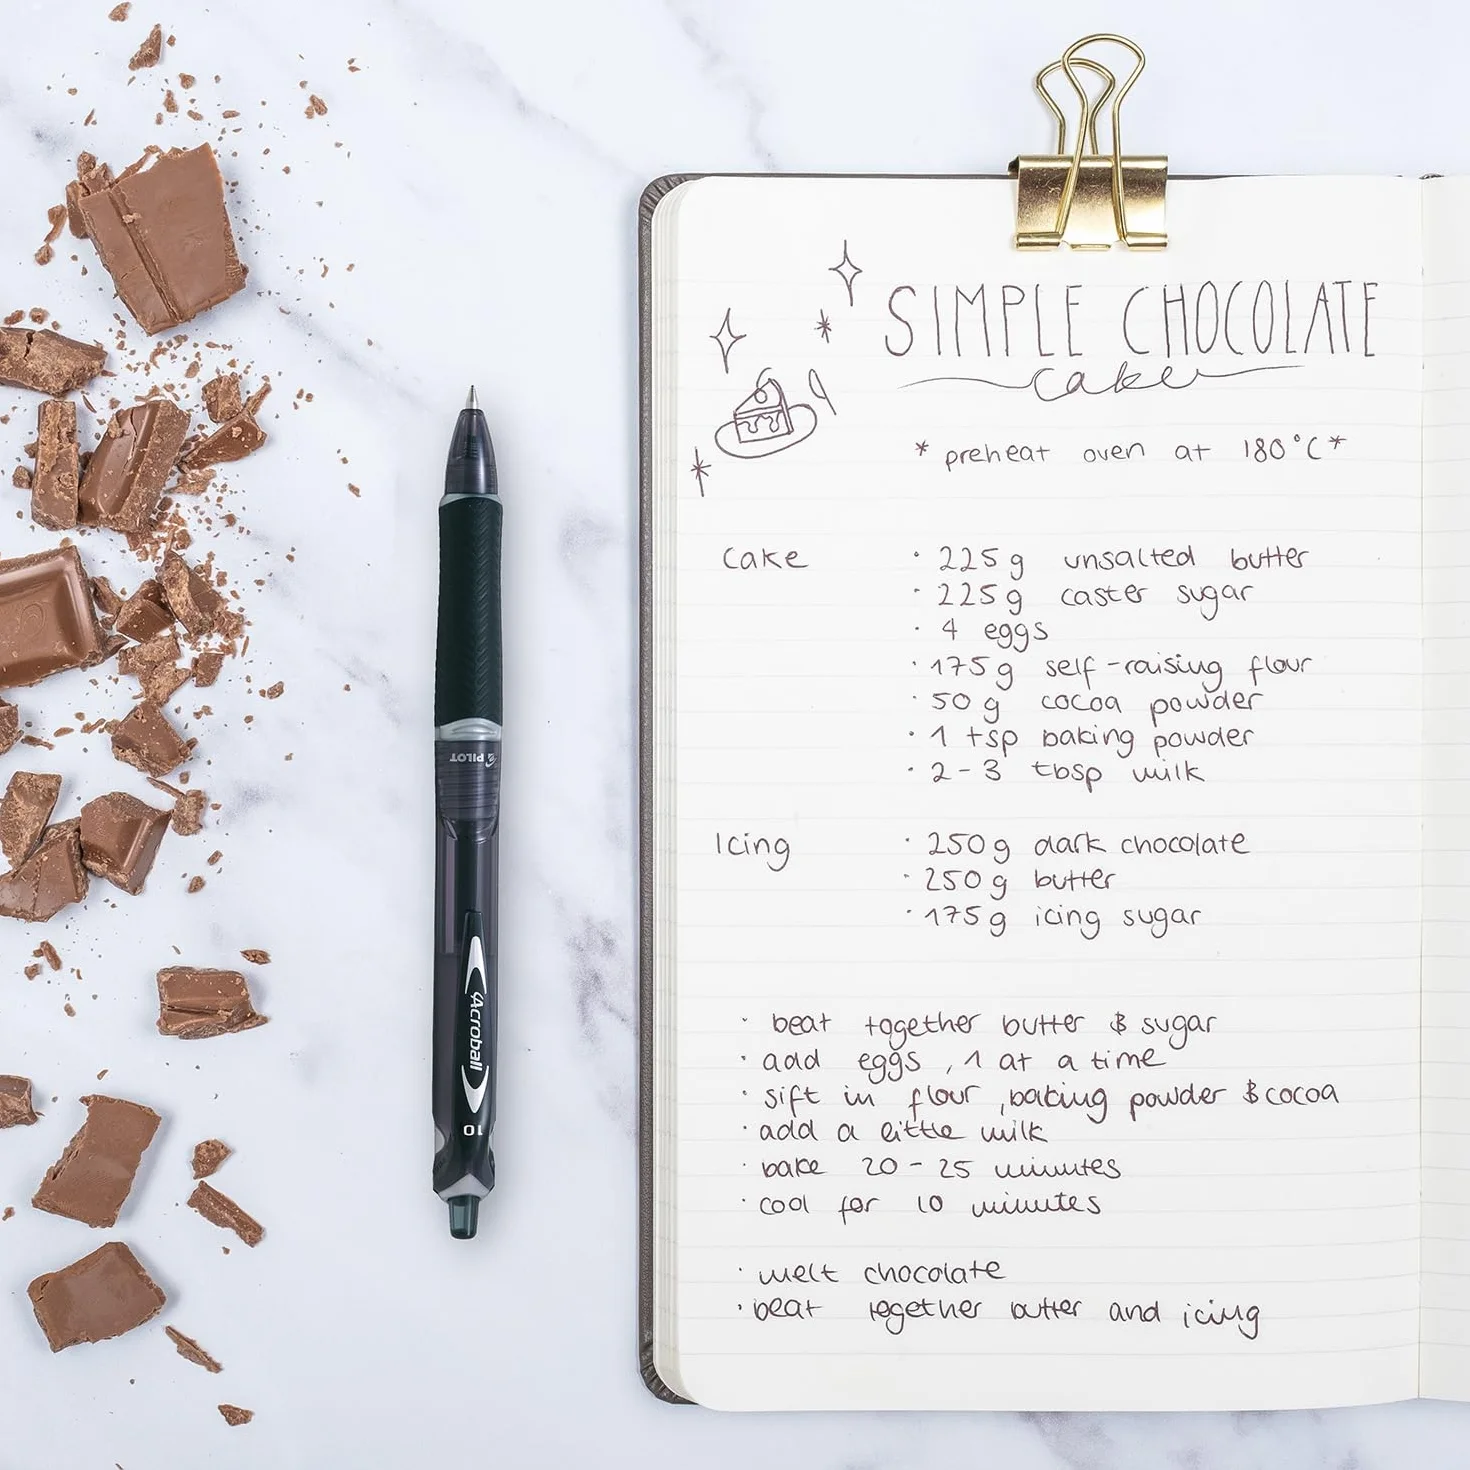 SIMPLE CHOCOLATE
cake
*preheat oven at 180°C*
Cake
· 225g unsalted butter
· 225g caster sugar
· 4 eggs
· 175g self-raising flour
· 50g cocoa powder
· 1 tsp baking powder
· 2-3 tbsp milk
Icing
· 250g dark chocolate
· 250g butter
· 175g icing sugar
· beat together butter & sugar
· add eggs, 1 at a time
· sift in flour, baking powder & cocoa
· add a little milk
· bake 20-25 minutes
· cool for 10 minutes
· melt chocolate
· beat together butter and icing
PILOT
Acroball
10